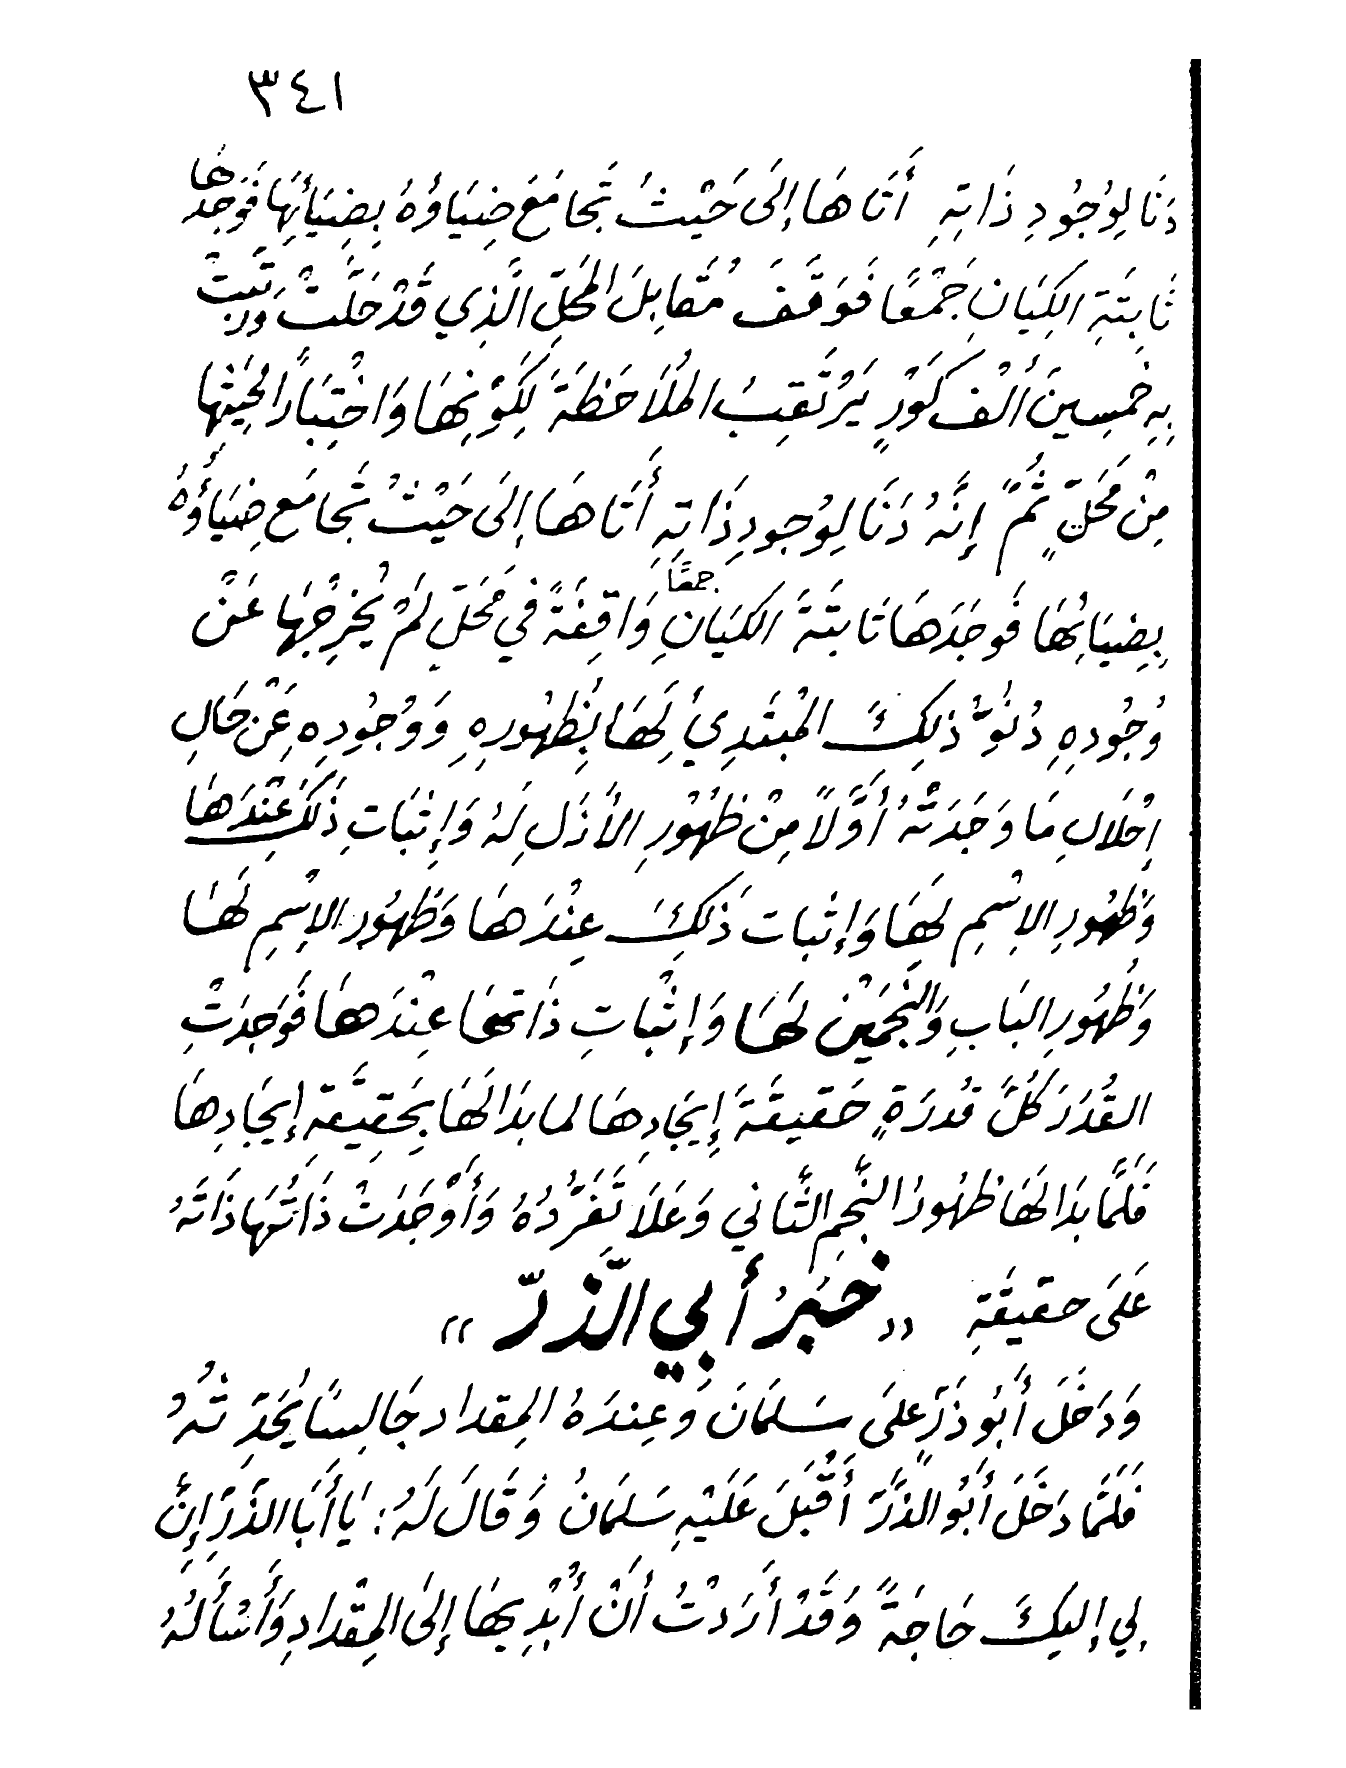 ٣٤١
دَنَا لِوُجُودِ ذَاتِهِ أَتَاهَا إِلَى حَيْثُ تَجَامَعَ ضِيَاؤُهُ بِضِيَائِهَا فَوَجَدَهَا
ثَابِتَةِ الكِيَانِ جَمْعًا فَوَقَفَ مُقَابِلَ المَحَلِّ الَّذِي قَدْ حَلَّتْ وَرَتَبَتْ
بِهِ خَمْسِينَ أَلْف كَوْرٍ يَرْتَقِبُ المُلَاحَظَةَ لِكَوْنِهَا وَاخْتِبَارًا لِحَيْثِهَا
مِنْ مَحَلٍّ ثُمَّ إِنَّهُ دَنَا لِوُجودِ ذَاتِهِ أَتَاهَا إِلَى حَيْثُ تَجَامَع ضِيَاؤُهُ
بِضِيَائِهَا فَوَجَدَهَا ثَابِتَةَ الكِيَانِ جمعًا وَاقِفَةً في مَحَلٍّ لَمْ يُخرِجْهَا عَنْ
وُجُودِهِ دُنُوُّ ذلِكَ المُبْتَدِئ لَهَا بِظُهُورِهِ وَوُجُودِهِ عَنْ حَالِ
إِحْلَالِ مَا وَجَدَتْهُ أَوَّلًا مِنْ ظُهُورِ الأَزَلِ لَهُ وَإِثبَاتِ ذَلِكَ عِنْدَهَا
وَظُهُورِ الاِسْمِ لَهَا وَإِثبات ذَلِكَ عِنْدَهَا وَظُهُورِ الاِسْمِ لَهَا
وَظُهُورِ البَابِ وَالنَجْمَيْن لَهَا وَإِثْبَاتِ ذَاتهَا عِنْدَهَا فَوَجَدَتْ
القُدَرَ كُلَّ قُدرَةٍ حَقيقَةَ إِيجَادِهَا لما بدَا لَهَا بِحَقِيقَةِ إِيجَادِهَا
فَلَمَّا بَدَا لَهَا ظهُورُ النَّجمِ الثَّاني وَعَلَا تَفَرُّدُهُ وَأَوْجَدَتْ ذَاتُهَا ذَاتَهُ
عَلَى حقيقَةِ « خَبَرُ أَبِي الذَّرّ »
وَدَخَلَ أَبُو ذَرٍّ عَلَى سَلمَانَ وَعِندَهُ المِقداد جَالِسًا يُحَدِّثُهُ
فَلَمَّا دَخَلَ أَبُو الذَّرِّ أَقْبَلَ عَلَيْهِ سَلمَانُ وَقَالَ لَهُ: يَا أَبَا الذَّرِّ إِنَّ
لِي إِليكَ حَاجَةً وَقَدْ أَرَدْتُ أَنْ أُبْدِيهَا إِلَى المِقْدَادِ وَأَسْأَلُهُ